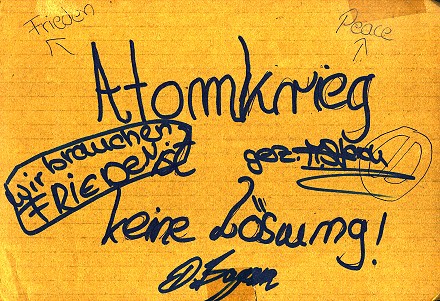 Frieden
Peace
Atomkrieg
wir brauchen
FRIEDEN!
ist
gez.
keine Lösung!